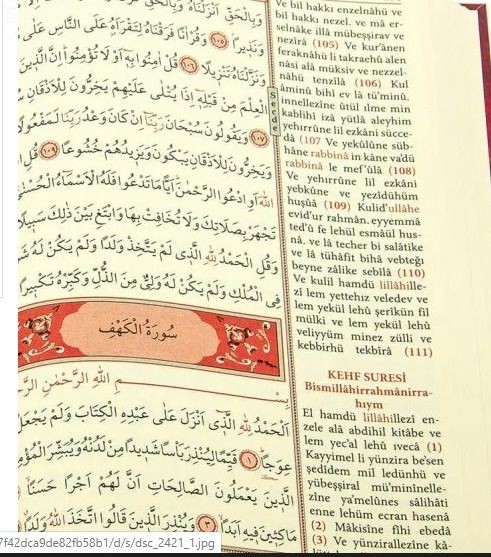 وَبِالْحَقِّ اَنْزَلْنَاهُ وَبِالْحَقِّ
وَنَذِيرًا ﴿١٠٥﴾ وَقُرْاٰنًا فَرَقْنَاهُ لِتَقْرَاَهُ عَلَى النَّاسِ عَلٰى
وَنَزَّلْنَاهُ تَنْزِيلًا ﴿١٠٦﴾ قُلْ اٰمِنُوا بِهٖ اَوْ لَا تُؤْمِنُوا اِنَّ الَّذِينَ
الْعِلْمَ مِنْ قَبْلِهٖ اِذَا يُتْلٰى عَلَيْهِمْ يَخِرُّونَ لِلْاَذْقَانِ
﴿١٠٧﴾ وَيَقُولُونَ سُبْحَانَ رَبِّنَا اِنْ كَانَ وَعْدُ رَبِّنَا لَمَفْعُولًا
وَيَخِرُّونَ لِلْاَذْقَانِ يَبْكُونَ وَيَزِيدُهُمْ خُشُوعًا ﴿١٠٩﴾ قُلِ
اللّٰهَ اَوِ ادْعُوا الرَّحْمٰنَ اَيًّا مَا تَدْعُوا فَلَهُ الْاَسْمَاءُ الْحُسْنٰى
تَجْهَرْ بِصَلَاتِكَ وَلَا تُخَافِتْ بِهَا وَابْتَغِ بَيْنَ ذٰلِكَ سَبِيلًا
وَقُلِ الْحَمْدُ لِلّٰهِ الَّذِى لَمْ يَتَّخِذْ وَلَدًا وَلَمْ يَكُنْ لَهُ
فِى الْمُلْكِ وَلَمْ يَكُنْ لَهُ وَلِىٌّ مِنَ الذُّلِّ وَكَبِّرْهُ تَكْبِيرًا
سُورَةُ الْكَهْفِ
بِسْمِ اللّٰهِ الرَّحْمٰنِ
اَلْحَمْدُ لِلّٰهِ الَّذِى اَنْزَلَ عَلٰى عَبْدِهِ الْكِتَابَ وَلَمْ يَجْعَلْ
عِوَجًا ﴿١﴾ قَيِّمًا لِيُنْذِرَ بَاْسًا شَدِيدًا مِنْ لَدُنْهُ وَيُبَشِّرَ
الَّذِينَ يَعْمَلُونَ الصَّالِحَاتِ اَنَّ لَهُمْ اَجْرًا حَسَنًا
مَاكِثِينَ فِيهِ اَبَدًا ﴿٣﴾ وَيُنْذِرَ الَّذِينَ قَالُوا اتَّخَذَ اللّٰهُ وَلَدًا
Secde
Ve bil hakkı enzelnâhü ve
bil hakkı nezel. ve mâ er-
selnâke illâ mübeşşirav ve
nezîrâ (105) Ve kur'ânen
feraknâhü li takraehû alen
nâsi alâ müksiv ve nezzel-
nâhü tenzîlâ (106) Kul
âminû bihî ev lâ tü'minû.
innellezîne ûtül ılme min
kablihî izâ yütlâ aleyhim
yehırrûne lil ezkâni sücce-
dâ (107 Ve yekûlûne süb-
hâne rabbinâ in kâne va'dü
rabbinâ le mef'ûlâ (108)
Ve yehırrûne lil ezkâni
yebkûne ve yezîdühüm
huşûâ (109) Kulid'ullâhe
evid'ur rahmân. eyyemmâ
ted'û fe lehül esmâül hus-
nâ. ve lâ techer bi salâtike
ve lâ tühâfit bihâ vebteğı
beyne zâlike sebîlâ (110)
Ve kulil hamdü lillâhille-
zî lem yettehız veledev ve
lem yekül lehû şerîkün fil
mülki ve lem yekül lehû
veliyyüm minez zülli ve
kebbirhü tekbîrâ (111)
KEHF SURESİ
Bismillâhirrahmânirra-
hıym
El hamdü lillâhillezî en-
zele alâ abdihil kitâbe ve
lem yec'al lehû ıvecâ (1)
Kayyimel li yünzira be'sen
şedîdem mil ledünhü ve
yübeşşiral mü'minînelle-
zîne ya'melûnes sâlihâti
enne lehüm ecran hasenâ
(2) Mâkisîne fîhi ebedâ
(3) Ve yünzirallezîne kâ-
7f42dca9de82fb58b1/d/s/dsc_2421_1.jpg